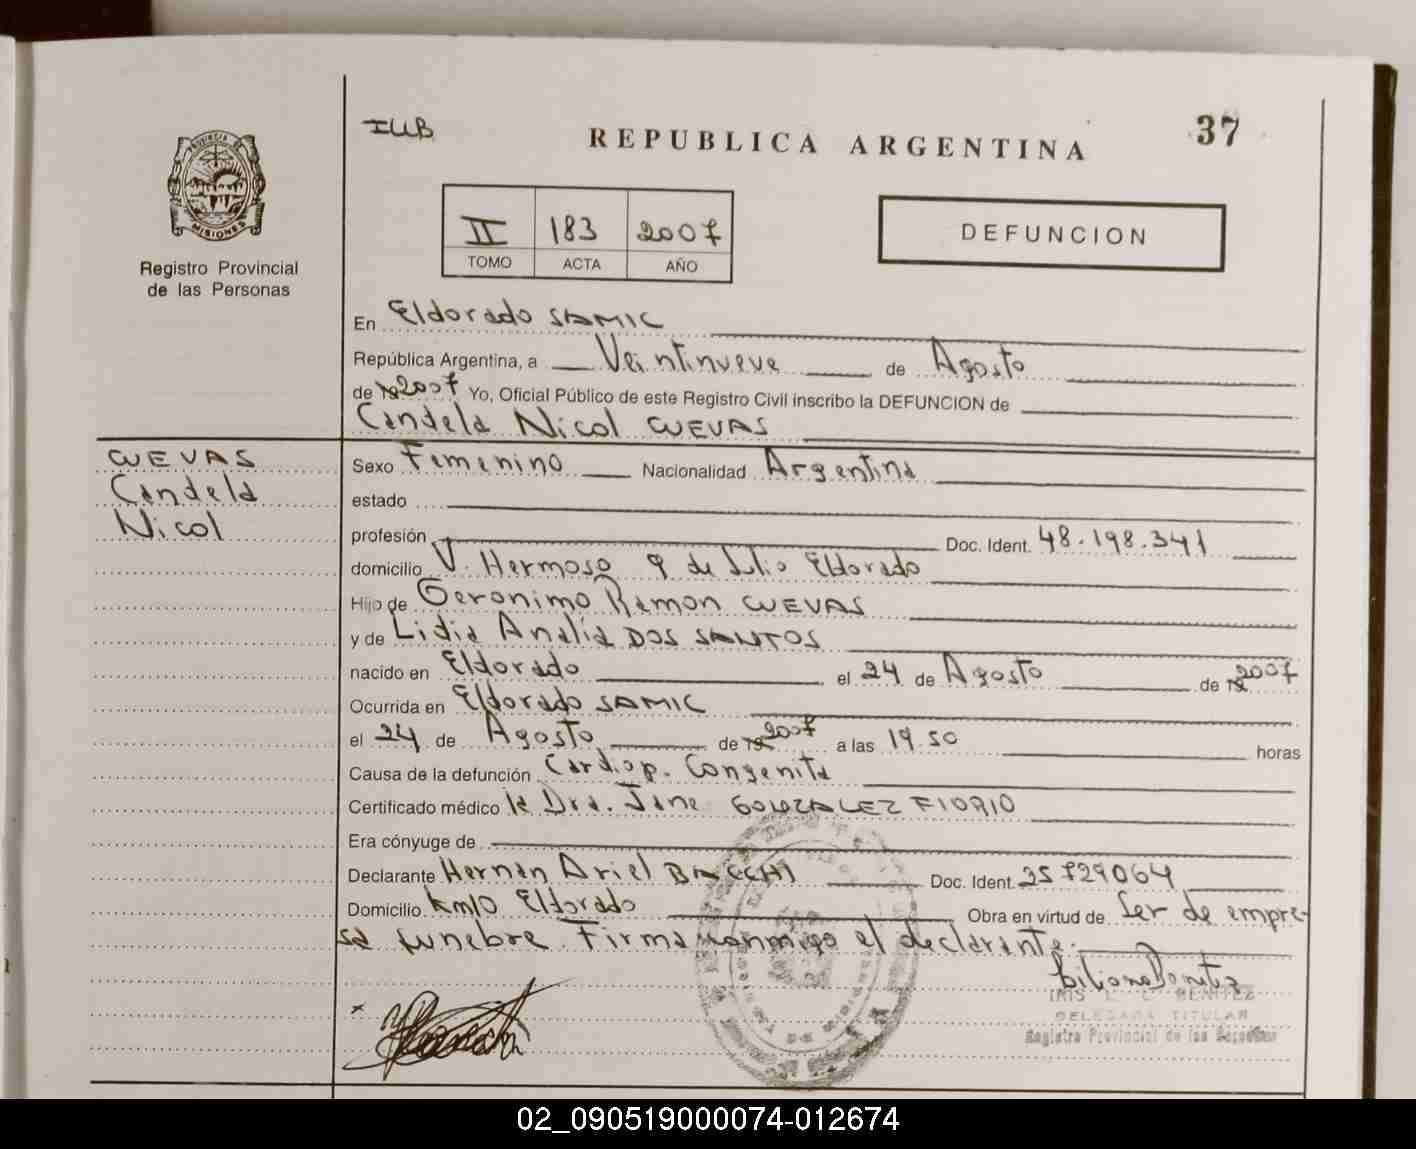 IUB
REPUBLICA ARGENTINA
37
PROVINCIA DE
MISIONES
Registro Provincial
de las Personas
II 183 2007
TOMO ACTA AÑO
DEFUNCION
En Eldorado SAMIC
República Argentina, a Veintinueve de Agosto
de 19 2007 Yo, Oficial Público de este Registro Civil inscribo la DEFUNCION de
Candela Nicol CUEVAS
CUEVAS
Candela
Nicol
Sexo Femenino Nacionalidad Argentina
estado
profesión Doc. Ident. 48.198.341
domicilio V. Hermoso 9 de Julio Eldorado
Hijo de Geronimo Ramon CUEVAS
y de Lidia Analia DOS SANTOS
nacido en Eldorado el 24 de Agosto de 19 2007
Ocurrida en Eldorado SAMIC
el 24 de Agosto de 19 2007 a las 19.50 horas
Causa de la defunción Cardiop. Congenita
Certificado médico la Dra. Jane GONZALEZ FIORIO
Era cónyuge de
Declarante Hernan Ariel BACCHI Doc. Ident. 25729064
Domicilio Km10 Eldorado Obra en virtud de Ser de empre-
sa funebre. Firma conmigo el declarante.
IRIS L. BENITEZ
DELEGADA TITULAR
Registro Provincial de las Personas
02_090519000074-012674